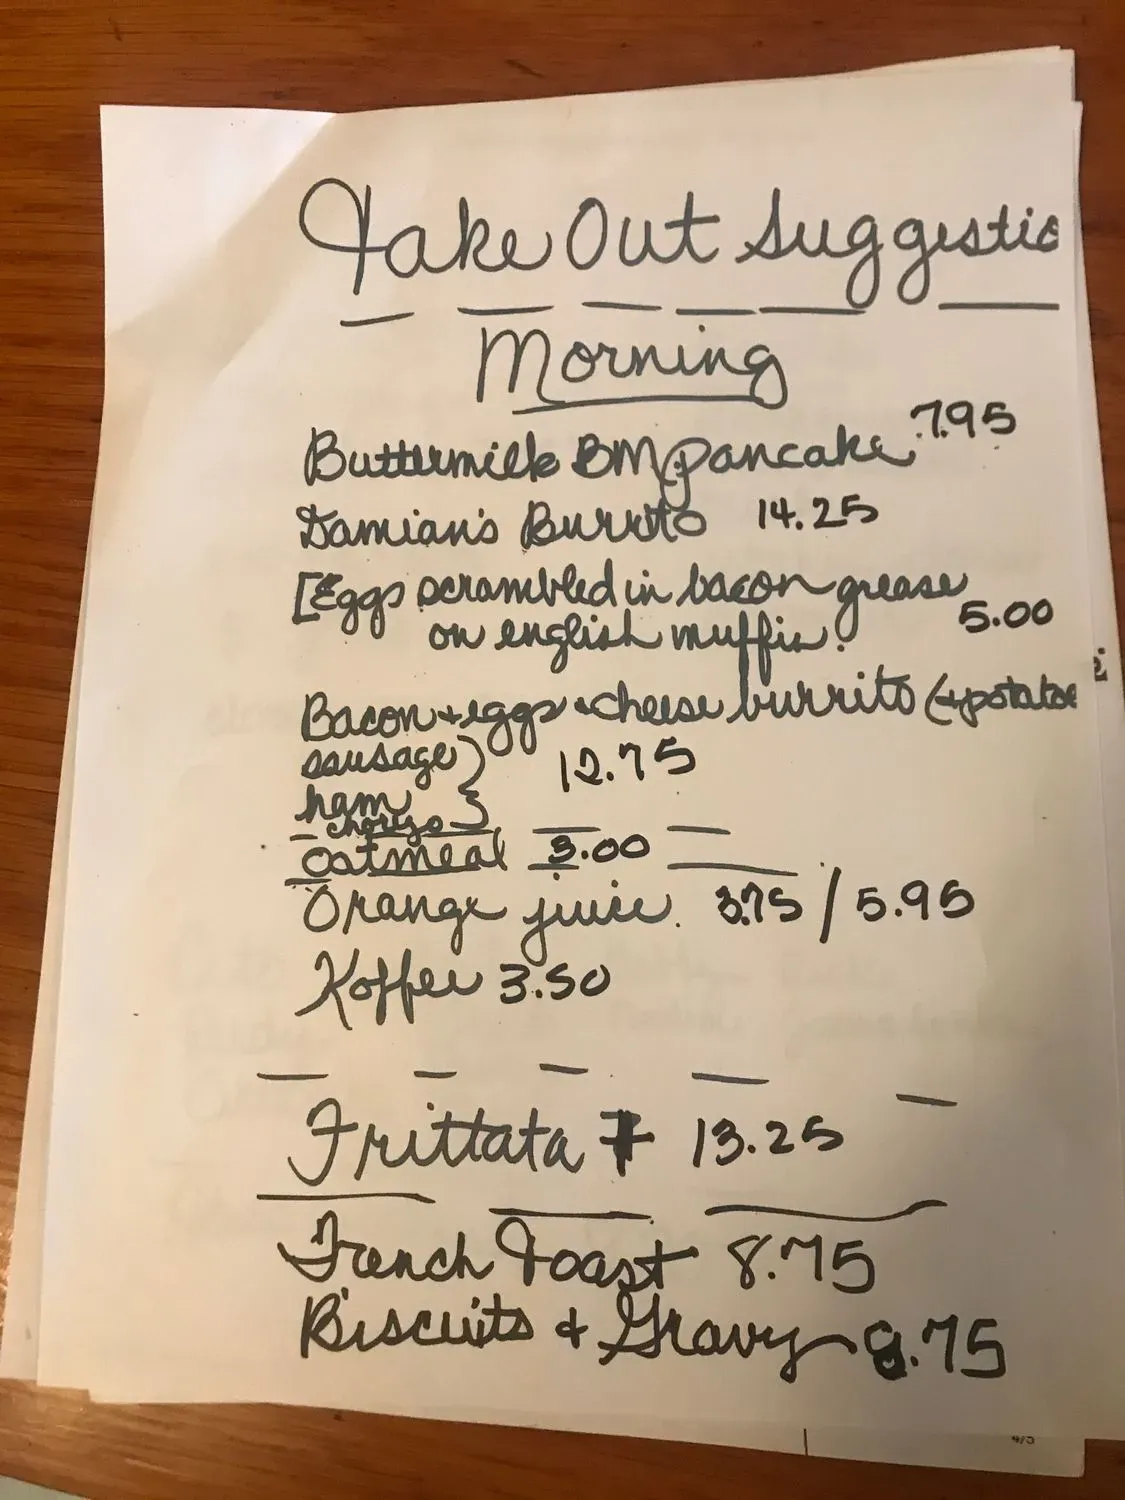 Take Out Suggestio
Morning
Buttermilk BM pancake 7.95
Damian's Burrito 14.25
[Eggs scrambled in bacon grease
on english muffin. 5.00
Bacon + eggs + cheese burrito (+potatoe
sausage
ham 12.75
chorizo
Oatmeal 3.00
Orange juice. 3.75 / 5.95
Koffee 3.50
Frittata 13.25
French Toast 8.75
Biscuits & Gravy .75
4/5